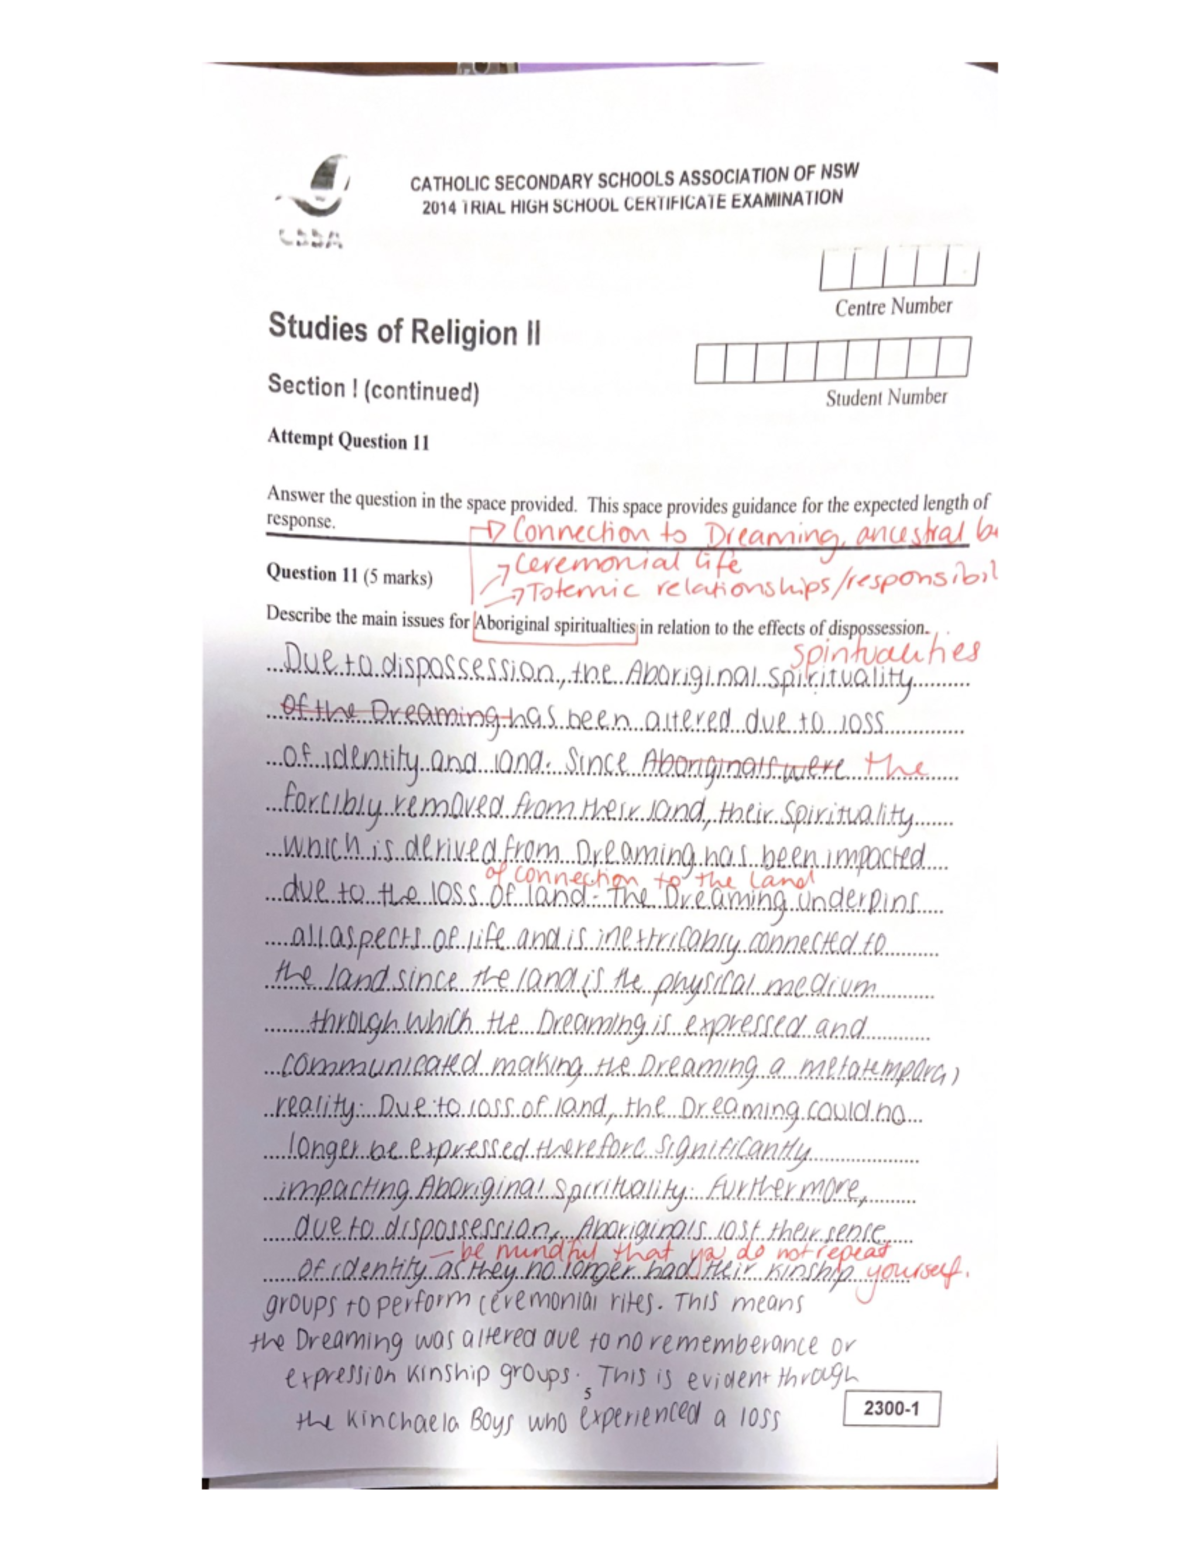 CSSA
CATHOLIC SECONDARY SCHOOLS ASSOCIATION OF NSW
2014 TRIAL HIGH SCHOOL CERTIFICATE EXAMINATION
Centre Number
Studies of Religion II
Student Number
Section I (continued)
Attempt Question 11
Answer the question in the space provided. This space provides guidance for the expected length of
response.
→ Connection to Dreaming, ancestral b
→ Ceremonial life
Question 11 (5 marks)
→ Totemic relationships/responsibil
Describe the main issues for Aboriginal spiritualties in relation to the effects of dispossession.
spiritualities
Due to dispossession, the Aboriginal spirituality
of the Dreaming has been altered due to loss
of identity and land. Since Aboriginals were the
forcibly removed from their land, their spirituality
which is derived from Dreaming has been impacted
of connection to the land
due to the loss of land. The Dreaming underpins
all aspects of life and is inextricably connected to
the land since the land is the physical medium
through which the Dreaming is expressed and
communicated making the Dreaming a metatemporal
reality. Due to loss of land, the Dreaming could no
longer be expressed therefore significantly
impacting Aboriginal spirituality. Furthermore,
due to dispossession, Aboriginals lost their sense
– be mindful that you do not repeat
of identity as they no longer had their kinship yourself.
groups to perform ceremonial rites. This means
the Dreaming was altered due to no rememberance or
expression kinship groups. This is evident through
5
the Kinchaela Boys who experienced a loss
2300-1